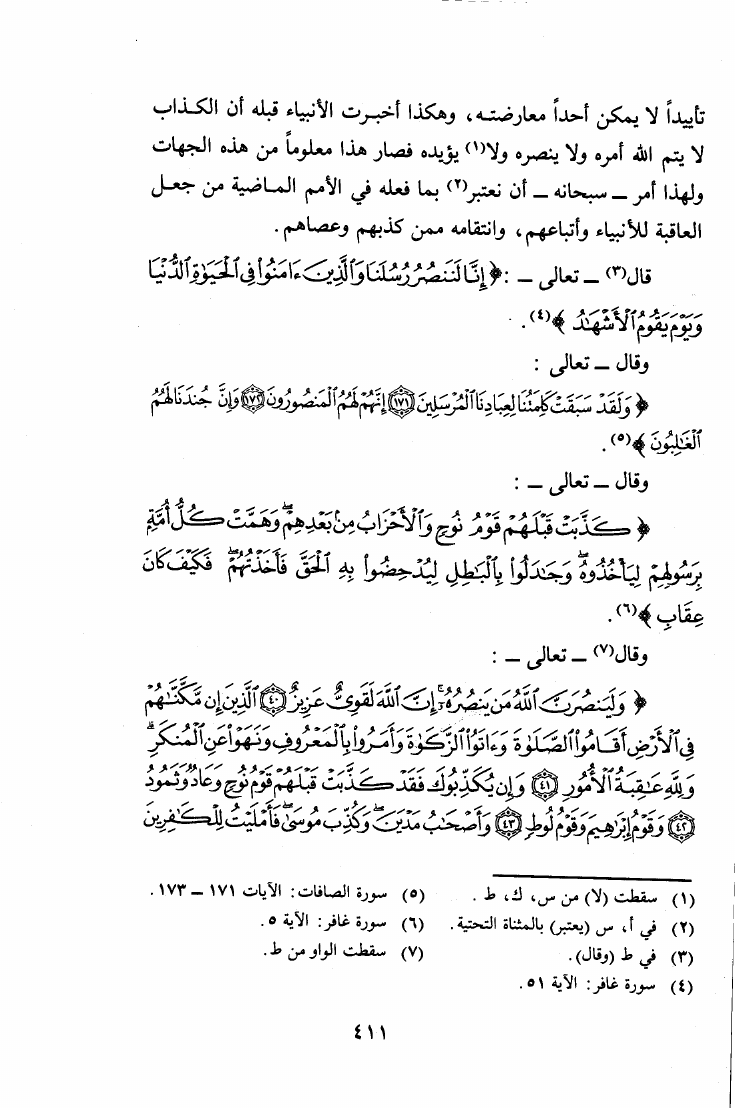 تأييداً لا يمكن أحداً معارضته، وهكذا أخبرت الأنبياء قبله أن الكذاب
لا يتم الله أمره ولا ينصره ولا(١) يؤيده فصار هذا معلوماً من هذه الجهات
ولهذا أمر ــ سبحانه ــ أن نعتبر(٢) بما فعله في الأمم الماضية من جعل
العاقبة للأنبياء وأتباعهم، وانتقامه ممن كذبهم وعصاهم.
قال(٣) ــ تعالى ــ : ﴿ إِنَّا لَنَنصُرُ رُسُلَنَا وَٱلَّذِينَ ءَامَنُوا۟ فِى ٱلْحَيَوٰةِ ٱلدُّنْيَا
وَيَوْمَ يَقُومُ ٱلْأَشْهَـٰدُ ﴾(٤).
وقال ــ تعالى :
﴿ وَلَقَدْ سَبَقَتْ كَلِمَتُنَا لِعِبَادِنَا ٱلْمُرْسَلِينَ ١٧١ إِنَّهُمْ لَهُمُ ٱلْمَنصُورُونَ ١٧٢ وَإِنَّ جُندَنَا لَهُمُ
ٱلْغَـٰلِبُونَ ﴾(٥).
وقال ــ تعالى ــ :
﴿ كَذَّبَتْ قَبْلَهُمْ قَوْمُ نُوحٍ وَٱلْأَحْزَابُ مِنۢ بَعْدِهِمْ ۖ وَهَمَّتْ كُلُّ أُمَّةٍۭ
بِرَسُولِهِمْ لِيَأْخُذُوهُ ۖ وَجَـٰدَلُوا۟ بِٱلْبَـٰطِلِ لِيُدْحِضُوا۟ بِهِ ٱلْحَقَّ فَأَخَذْتُهُمْ ۖ فَكَيْفَ كَانَ
عِقَابِ ﴾(٦).
وقال(٧) ــ تعالى ــ :
﴿ وَلَيَنصُرَنَّ ٱللَّهُ مَن يَنصُرُهُۥٓ ۗ إِنَّ ٱللَّهَ لَقَوِىٌّ عَزِيزٌ ٤٠ ٱلَّذِينَ إِن مَّكَّنَّـٰهُمْ
فِى ٱلْأَرْضِ أَقَامُوا۟ ٱلصَّلَوٰةَ وَءَاتَوُا۟ ٱلزَّكَوٰةَ وَأَمَرُوا۟ بِٱلْمَعْرُوفِ وَنَهَوْا۟ عَنِ ٱلْمُنكَرِ ۗ
وَلِلَّهِ عَـٰقِبَةُ ٱلْأُمُورِ ٤١ وَإِن يُكَذِّبُوكَ فَقَدْ كَذَّبَتْ قَبْلَهُمْ قَوْمُ نُوحٍ وَعَادٌ وَثَمُودُ
٤٢ وَقَوْمُ إِبْرَٰهِيمَ وَقَوْمُ لُوطٍ ٤٣ وَأَصْحَـٰبُ مَدْيَنَ ۖ وَكُذِّبَ مُوسَىٰ فَأَمْلَيْتُ لِلْكَـٰفِرِينَ
(١) سقطت (لا) من س، ك، ط.
(٢) في أ، س (يعتبر) بالمثناة التحتية.
(٣) في ط (وقال).
(٤) سورة غافر: الآية ٥١.
(٥) سورة الصافات: الآيات ١٧١ ــ ١٧٣.
(٦) سورة غافر: الآية ٥.
(٧) سقطت الواو من ط.
٤١١